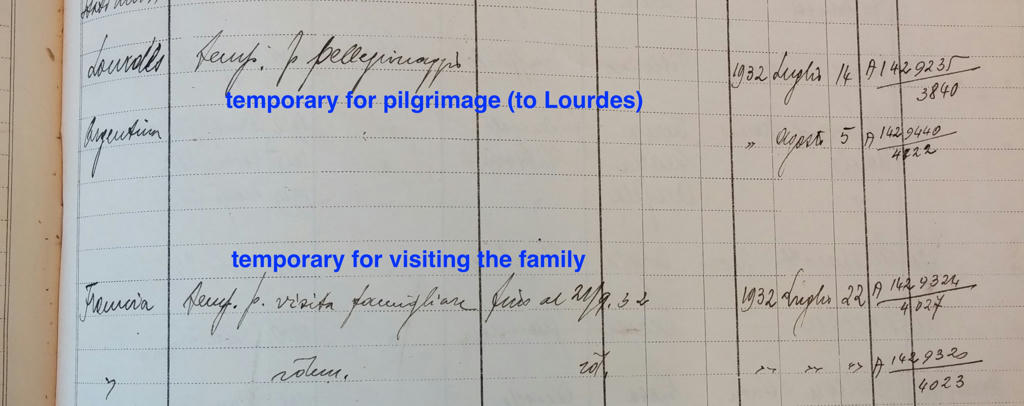 Lourdes temp. p pellegrinaggio 1932 Luglio 14 A 1429235
3840
temporary for pilgrimage (to Lourdes)
Argentina " Agosto 5 A 1429440
4222
temporary for visiting the family
Francia temp. p. visita famigliare fino al 21/9.32 1932 Luglio 22 A 1429324
4027
" idem. id. " " " A 1429320
4023